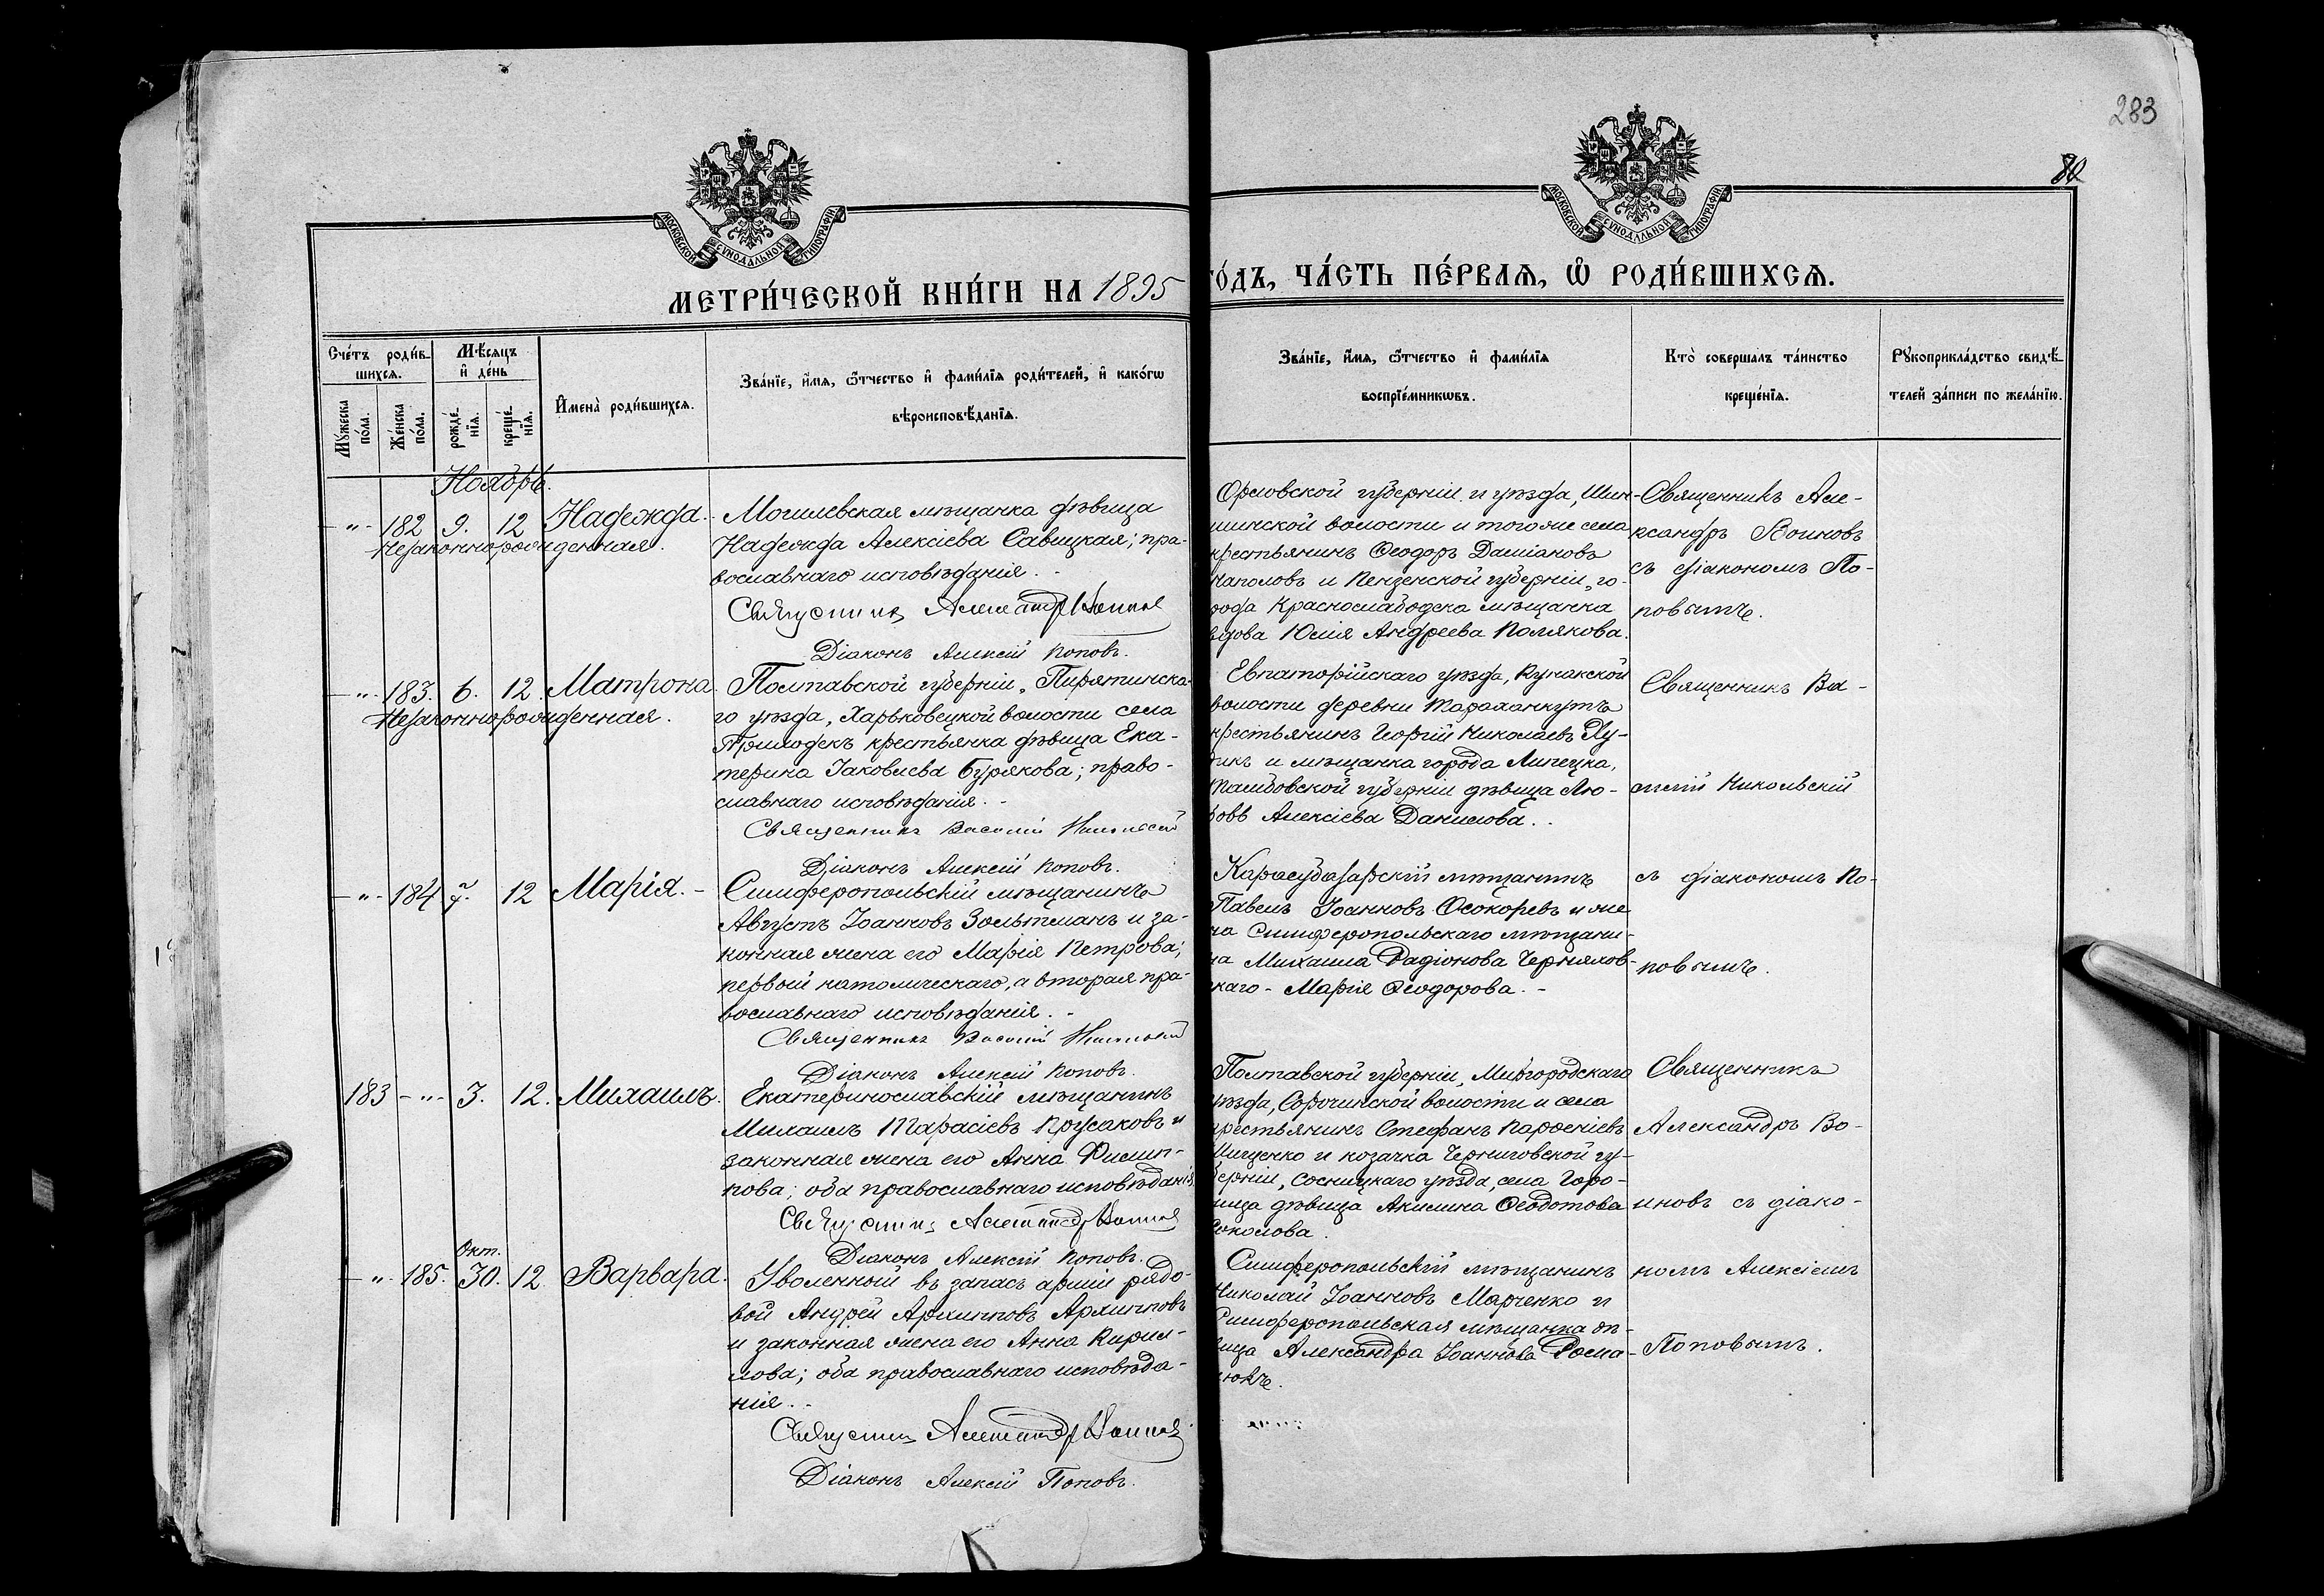 283
80
МОСКОВСКОЙ СУНОДАЛЬНОЙ ТИПОГРАФІИ
МОСКОВСКОЙ СУНОДАЛЬНОЙ ТИПОГРАФІИ
МЕТРИ́ЧЕСКОЙ КНИ́ГИ НА 1895
го́дъ, ЧА́СТЬ ПЕ́РВАѦ, Ѡ РОДИ́ВШИХСѦ.
Сче́тъ роди́в-
шихсѧ.
Мѣ́сѧцъ
и҆ де́нь
Мꙋ́жеска
по́ла.
Же́нска
по́ла.
рожде́-
нїѧ.
креще́-
нїѧ.
И҆мена̀ роди́вшихсѧ.
Зва́нїе, и҆́мѧ, ѻ҆́тчество и҆ фами́лїѧ роди́телей, и҆ како́гѡ
вѣроисповѣ́данїѧ.
Зва́нїе, и҆́мѧ, ѻ҆́тчество и҆ фами́лїѧ
воспрїе́мникѡвъ.
Кто̀ соверша́лъ та́инство
креще́нїѧ.
Рꙋкоприкла́дство свидѣ́-
телей за́писи по жела́нїю.
Ноябрь.
-"- 182 9. 12 Надежда.
Незаконнорожденная.
Могилевская мѣщанка дѣвица
Надежда Алексіева Савицкая; пра-
вославнаго исповѣданія.
Священникъ Александръ Воиновъ
Діаконъ Алексій Поповъ.
Орловской губерніи и уѣзда,
шинской волости и того же села
крестьянинъ Ѳеодоръ Даміановъ
и Пензенской губерніи, го-
рода Краснослободска мѣщанка
вдова Юлія Андреева Полякова.
Священникъ Але-
ксандръ Воиновъ
съ діакономъ По-
повымъ.
-"- 183. 6. 12. Матрона.
Незаконнорожденная.
Полтавской губерніи, Пирятинска-
го уѣзда, Харьковецкой волости села
Приходекъ крестьянка дѣвица Ека-
терина Іаковлева Бурякова; право-
славнаго исповѣданія. -
Священникъ Василій Никольскій
Діаконъ Алексій Поповъ.
Евпаторійскаго уѣзда, Кунакской
волости деревни Тараханкутъ
крестьянинъ Георгій Николаевъ
и мѣщанка города Липецка,
Тамбовской губерніи дѣвица Лю-
бовь Алексіева Данилова. .
Священникъ Ва-
силій Никольскій
съ діакономъ По-
повымъ.
-"- 184 7. 12 Марія. -
Симферопольскій мѣщанинъ
Августъ Іоанновъ Зольтманъ и за-
конная жена его Марія Петрова;
первый католическаго, а вторая пра-
вославнаго исповѣданія. -
Священникъ Василій Никольскій
Діаконъ Алексій Поповъ.
Карасубазарскій мѣщанинъ
Павелъ Іоанновъ Осокоревъ и же
на Симферопольскаго мѣщани-
на Михаила Радіонова Черняхов-
скаго - Марія Ѳеодорова. -
183 -"- 3. 12. Михаилъ.
Екатеринославскій мѣщанинъ
Михаилъ Тарасіевъ Прусаковъ и
законная жена его Анна Филип-
пова; оба православнаго исповѣданія.
Священникъ Александръ Воиновъ
Діаконъ Алексій Поповъ.
Полтавской губерніи, Миргородскаго
уѣзда, Сорочинской волости и села
крестьянинъ Стефанъ Парѳеніевъ
Мищенко и козачка Черниговской гу-
берніи, Сосницкаго уѣзда, села Горо-
дища дѣвица Акилина Ѳеодотова
Соколова.
Священникъ
Александръ Во-
иновъ съ діако-
номъ Алексіемъ
Поповымъ.
Окт.
-"- 185. 30. 12. Варвара.
Уволенный въ запасъ арміи рядо-
вой Андрей Архипповъ Архипповъ
и законная жена его Анна Кирил-
лова; оба православнаго исповѣда-
нія. -
Священникъ Александръ Воиновъ
Діаконъ Алексій Поповъ.
Симферопольскій мѣщанинъ
Николай Іоанновъ Марченко и
Симферопольская мѣщанка дѣ-
вица Александра Іоаннова Рома-
нюкъ.